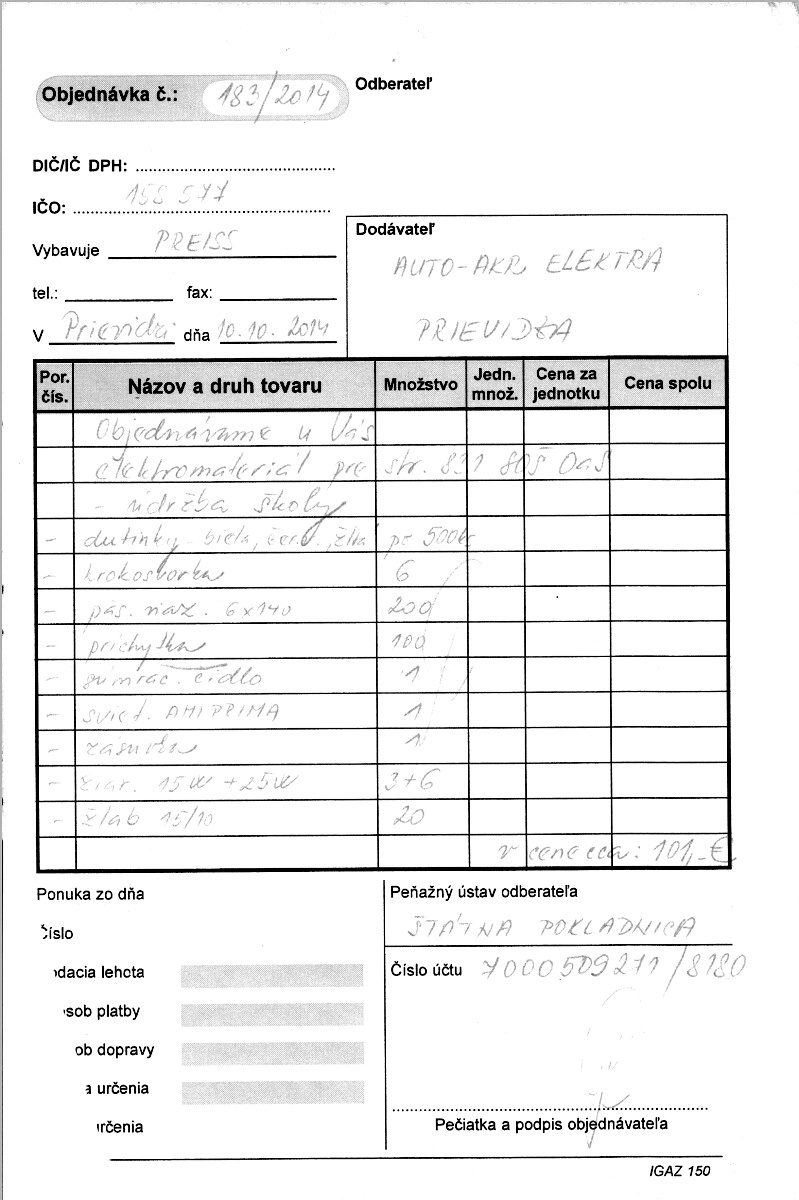 Objednávka č.: 183/2014
Odberateľ
DIČ/IČ DPH:
IČO: 158 577
Vybavuje PREISS
Dodávateľ
AUTO-AKR ELEKTRA
PRIEVIDZA
tel.: fax:
V Prievidzi dňa 10.10. 2014
Por. čís. Názov a druh tovaru Množstvo Jedn. množ. Cena za jednotku Cena spolu
Objednávame u Vás
elektromateriál pre str. 831 805 OaS
- údržba školy
- dutinky - biela, červ., žltá po 500ks
- krokosvorka 6
- pás. viaz. 6x140 200
- príchytka 100
- súmrac. čidlo 1
- sviet. AMI PRIMA 1
- zásuvka 1
- žiar. 15W + 25W 3+6
- žlab 15/10 20
v cene cca: 101,-€
Ponuka zo dňa
Peňažný ústav odberateľa
číslo
ŠTÁTNA POKLADNICA
dacia lehota
Číslo účtu 7000509211/8180
sob platby
ob dopravy
a určenia
určenia
Pečiatka a podpis objednávateľa
IGAZ 150